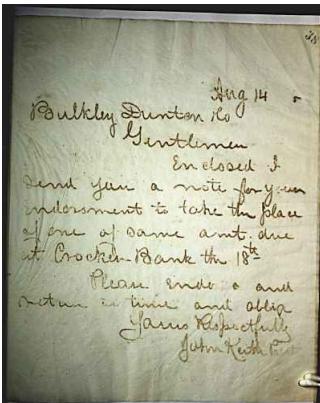 38
Aug 14
Bulkley Dunton & Co
Gentlemen
Enclosed I
send you a note for your
endorsment to take the place
of one of same amt. due
at Crocker Bank the 18th
Please endo & and
return in time and oblige
Yours Respectfully
John Keith